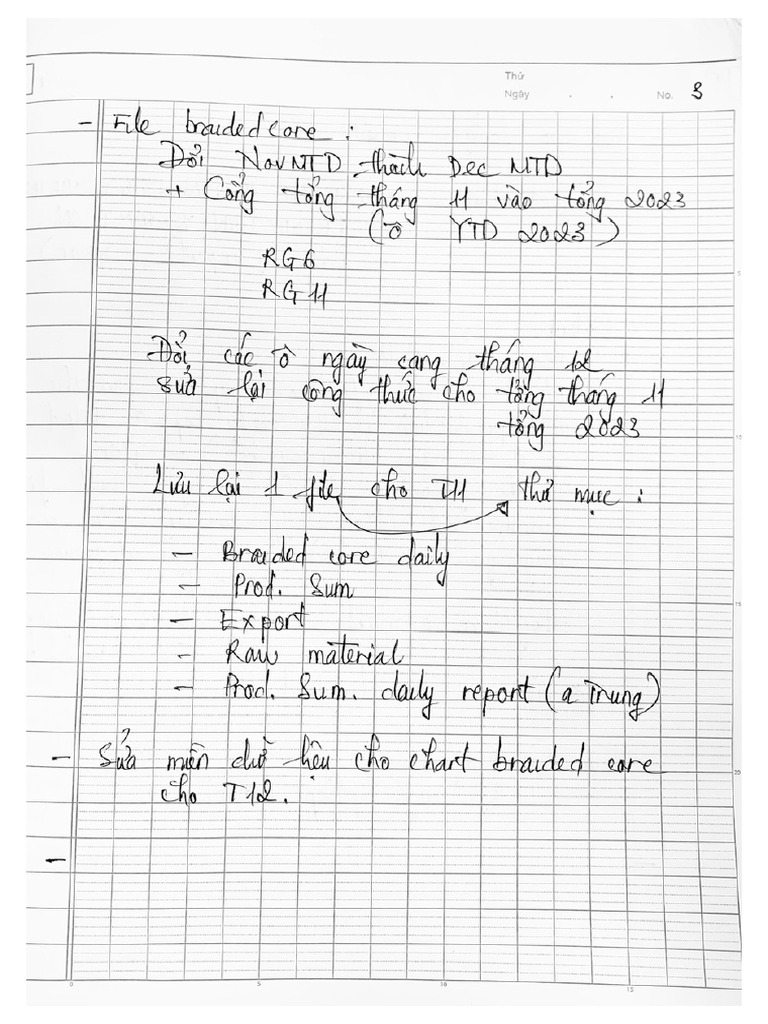 Thứ
Ngày . . No. 3
- File braided core :
Đổi Nov MTD thành Dec MTD
+ Cổng tổng tháng 11 vào tổng 2023
(ô YTD 2023)
RG6
RG 11
Đổi các ô ngày sang tháng 12
sửa lại công thức cho tổng tháng 11
tổng 2023
Lưu lại 1 file cho T11 thư mục :
- Braided core daily
- Prod. Sum
- Export
- Raw material
- Prod. Sum. daily report (a Trung)
- Sửa miền dữ liệu cho chart braided core
cho T12.
-
5
10
15
20
0 5 10 15